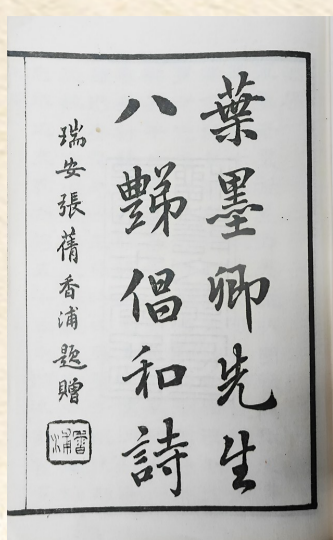 葉墨卿先生
八豑倡和詩
瑞安張蒨香浦題贈
香浦